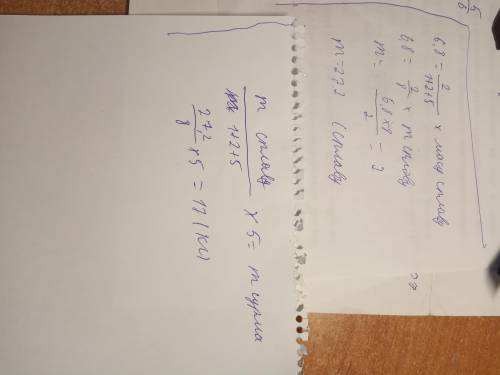 6,8 = 2/(1+2+5) × масу сплаву
6,8 = 2/8 × m сплаву
m = (6,8×8)/2 =
m=272 (сплаву
m сплаву/(1+2+5) × 5 = m сурми
27,2/8 ×5 = 17 (кг)
5/6